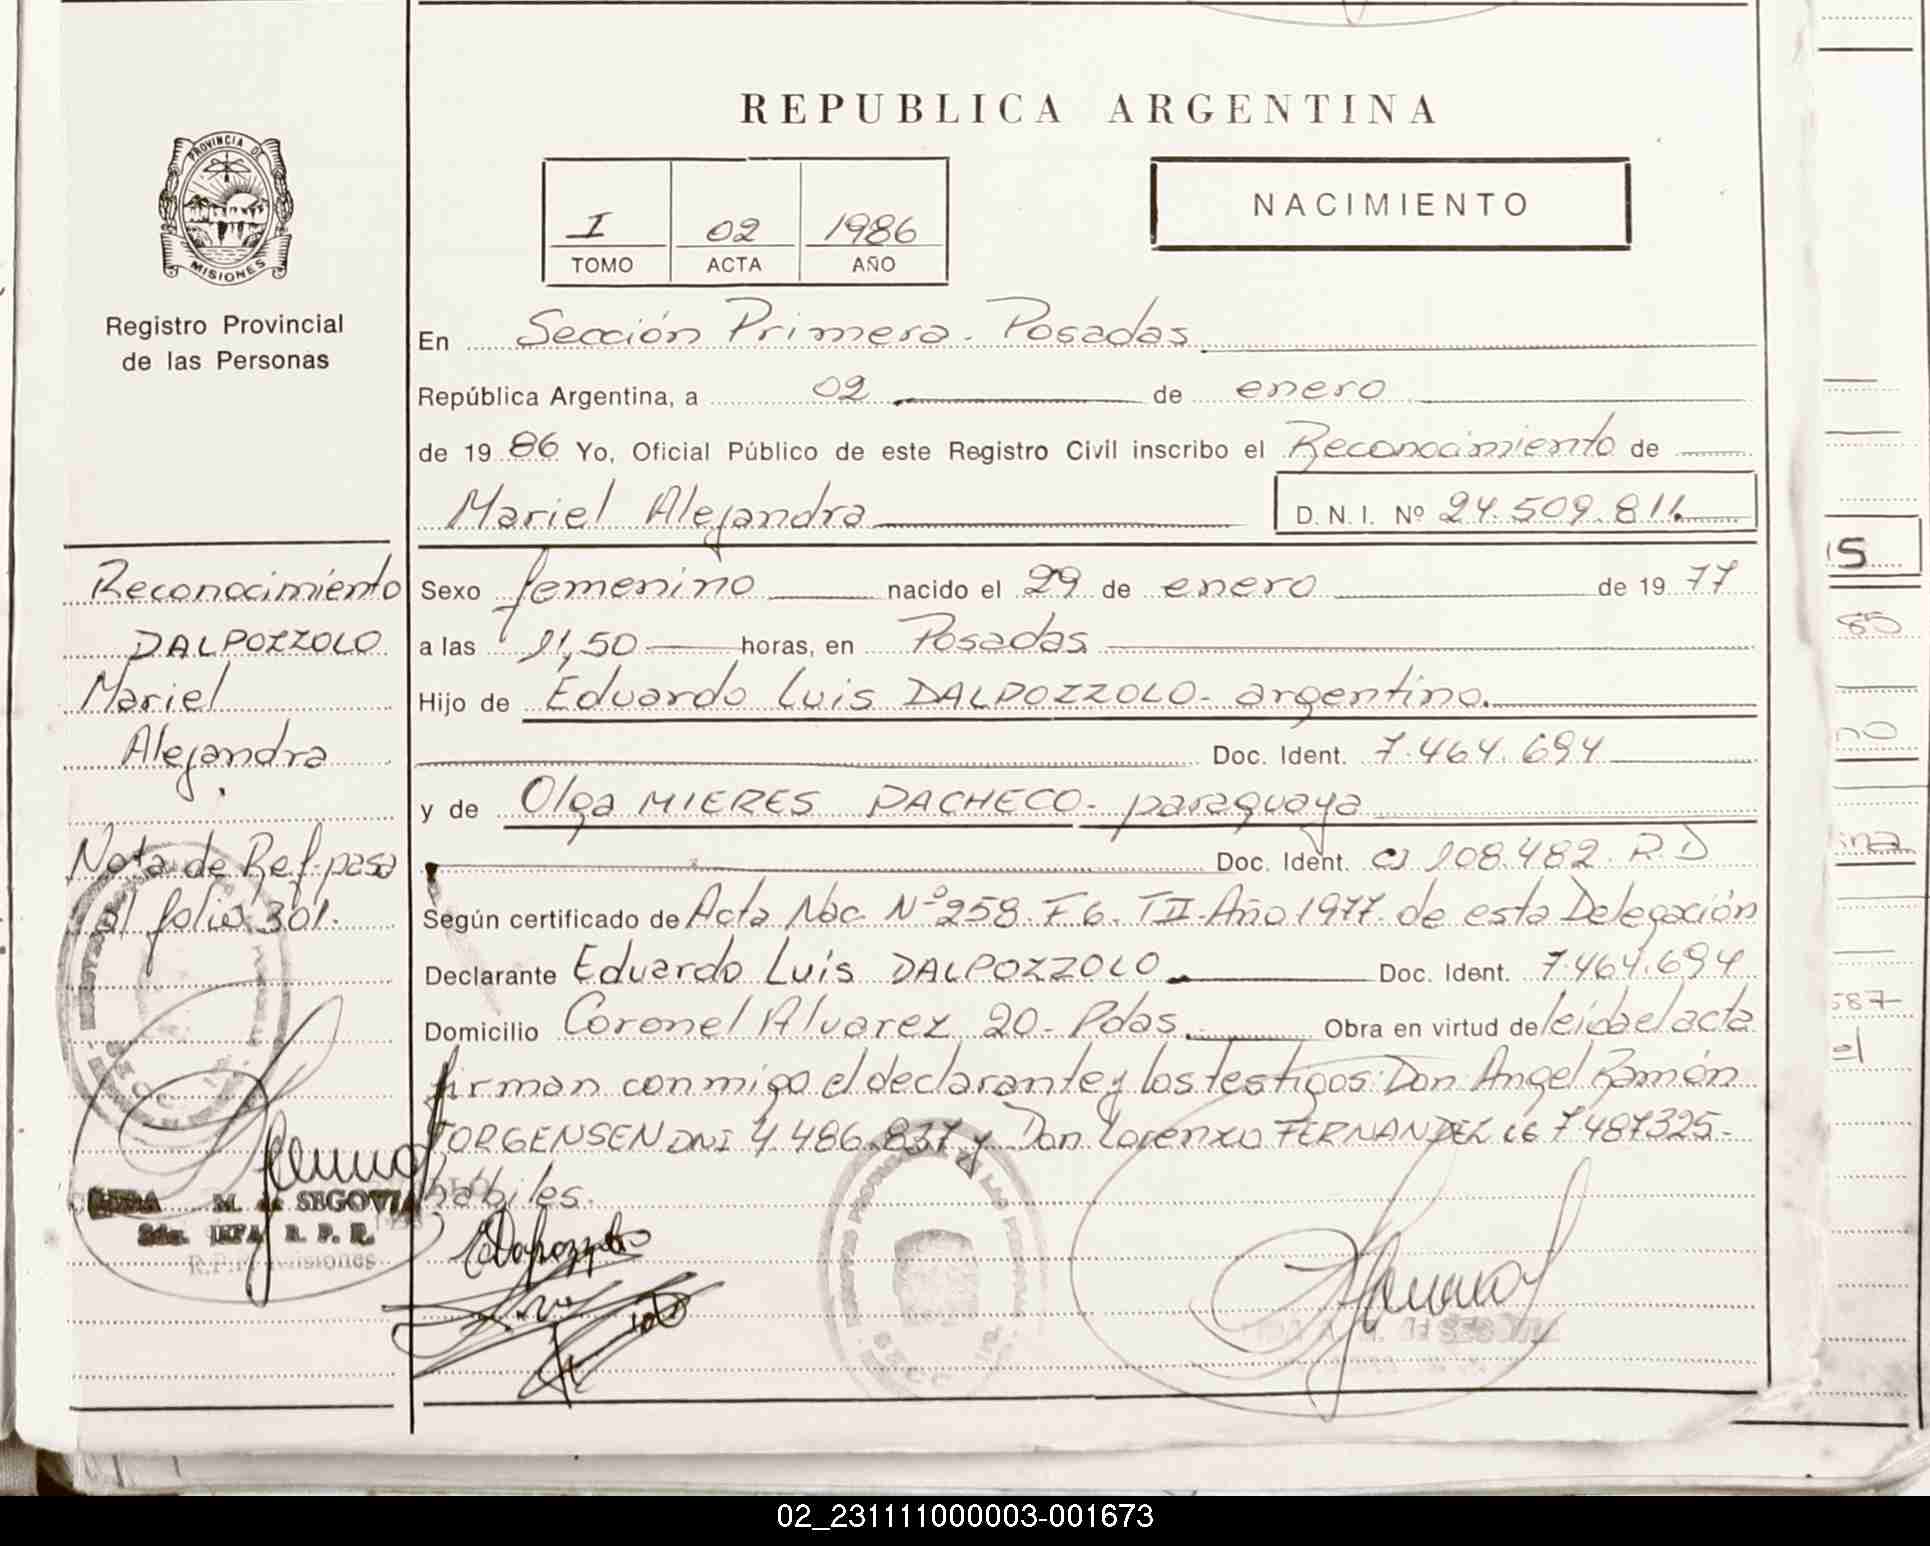 REPUBLICA ARGENTINA
PROVINCIA DE
MISIONES
Registro Provincial
de las Personas
I 02 1986
TOMO ACTA AÑO
NACIMIENTO
En Sección Primera - Posadas
República Argentina, a 02 de enero
de 19 86 Yo, Oficial Público de este Registro Civil inscribo el Reconocimiento de
Mariel Alejandra D. N. I. Nº 24.509.811
Reconocimiento
DALPOZZOLO
Mariel
Alejandra
Nota de Ref. pasa
al folio 301.
Sexo femenino nacido el 29 de enero de 19 77
a las 11,50 horas, en Posadas
Hijo de Eduardo Luis DALPOZZOLO - argentino.
Doc. Ident. 7.464.694
y de Olga MIERES PACHECO - paraguaya
Doc. Ident. CI 108.482. R.D
Según certificado de Acta Nac. Nº 258. F. 6. T II - Año 1977 de esta Delegación
Declarante Eduardo Luis DALPOZZOLO Doc. Ident. 7.464.694
Domicilio Coronel Alvarez 20 - Pdas. Obra en virtud de leida el acta
firman conmigo el declarante y los testigos: Don Angel Ramón
JORGENSEN DNI 4.486.837 y Don Lorenzo FERNANDEZ LE 7487325 -
habiles.
M. de SEGOVIA
R. P. R.
Misiones
02_231111000003-001673